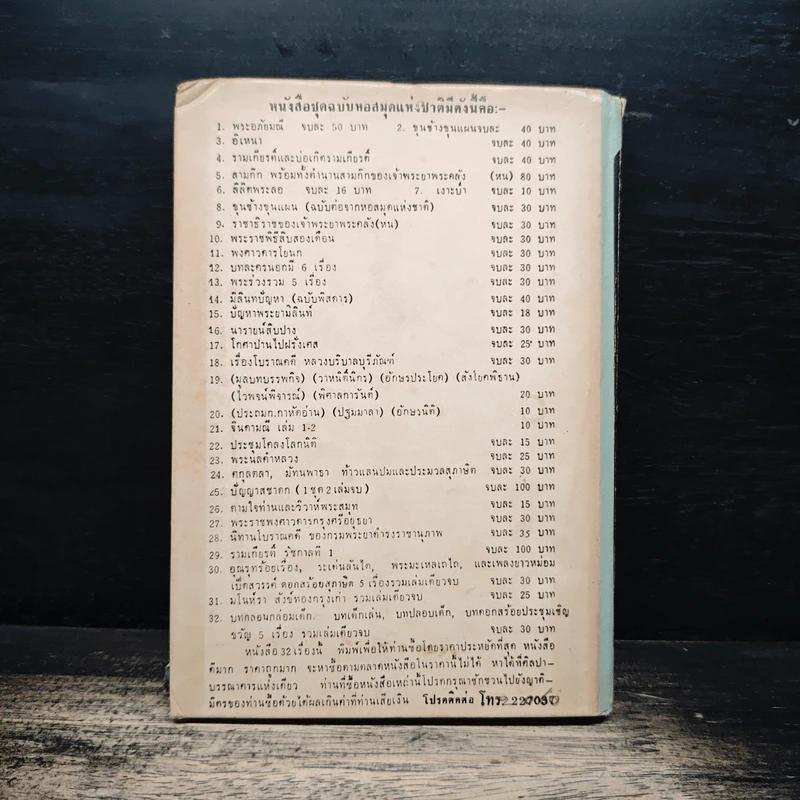 หนังสือชุดฉบับหอสมุดแห่งชาติมีดังนี้คือ:-
1. พระอภัยมณี จบละ 50 บาท 2. ขุนช้างขุนแผนจบละ 40 บาท
3. อิเหนา จบละ 40 บาท
4. รามเกียรติ์และบ่อเกิดรามเกียรติ์ จบละ 40 บาท
5. สามก๊ก พร้อมทั้งตำนานสามก๊กของเจ้าพระยาพระคลัง (หน) 80 บาท
6. ลิลิตพระลอ จบละ 16 บาท 7. เงาะป่า จบละ 10 บาท
8. ขุนช้างขุนแผน (ฉบับต่อจากหอสมุดแห่งชาติ) จบละ 30 บาท
9. ราชาธิราชของเจ้าพระยาพระคลัง(หน) จบละ 30 บาท
10. พระราชพิธีสิบสองเดือน จบละ 30 บาท
11. พงศาวดารโยนก จบละ 30 บาท
12. บทละครนอกมี 6 เรื่อง จบละ 30 บาท
13. พระร่วงรวม 5 เรื่อง จบละ 30 บาท
14. มิลินทปัญหา (ฉบับพิสดาร) จบละ 40 บาท
15. ปัญหาพระยามิลินท์ จบละ 18 บาท
16. นารายน์สิบปาง จบละ 30 บาท
17. โกศาปานไปฝรั่งเศส จบละ 25 บาท
18. เรื่องโบราณคดี หลวงบริบาลบุรีภัณฑ์ จบละ 30 บาท
19. (มูลบทบรรพกิจ) (วาหนิติ์นิกร) (อักษรประโยค) (สังโยคพิธาน)
(ไวพจน์พิจารณ์) (พิศาลการันต์) 20 บาท
20. (ประถมก.กาหัดอ่าน) (ปฐมมาลา) (อักษรนิติ) 10 บาท
21. จินดามณี เล่ม 1-2 10 บาท
22. ประชุมโคลงโลกนิติ จบละ 15 บาท
23. พระนลคำหลวง จบละ 25 บาท
24. ศกุลตลา, มัทนพาธา ท้าวแสนปมและประมวลสุภาษิต จบละ 30 บาท
25. ปัญญาสชาดก (1 ชุด 2 เล่มจบ) จบละ 100 บาท
26. ตามใจท่านและวิวาห์พระสมุท จบละ 15 บาท
27. พระราชพงศาวดารกรุงศรีอยุธยา จบละ 30 บาท
28. นิทานโบราณคดี ของกรมพระยาดำรงราชานุภาพ จบละ 35 บาท
29. รามเกียรติ์ รัชกาลที่ 1 จบละ 100 บาท
30. อุณรุทร้อยเรื่อง, ระเด่นลันได, พระมะเหลเถไถ, และเพลงยาวหม่อม
เป็ดสวรรค์ ดอกสร้อยสุภาษิต 5 เรื่องรวมเล่มเดียวจบ จบละ 30 บาท
31. มโนห์รา สังข์ทองกรุงเก่า รวมเล่มเดียวจบ จบละ 25 บาท
32. บทกลอนกล่อมเด็ก. บทเด็กเล่น, บทปลอบเด็ก, บทดอกสร้อยประชุมเชิญ
ขวัญ 5 เรื่อง รวมเล่มเดียวจบ จบละ 30 บาท
หนังสือ 32 เรื่องนี้ พิมพ์เพื่อให้ท่านซื้อโดยราคาประหยัดที่สุด หนังสือ
ดีมาก ราคาถูกมาก จะหาซื้อตามตลาดหนังสือในราคานี้ไม่ได้ หาได้ที่ศิลปา-
บรรณาคารแห่งเดียว ท่านที่ซื้อหนังสือเหล่านี้โปรดกรุณาชักชวนไปยังญาติ-
มิตรของท่านซื้อด้วยได้ผลเกินค่าที่ท่านเสียเงิน โปรดติดต่อ โทร. 227037